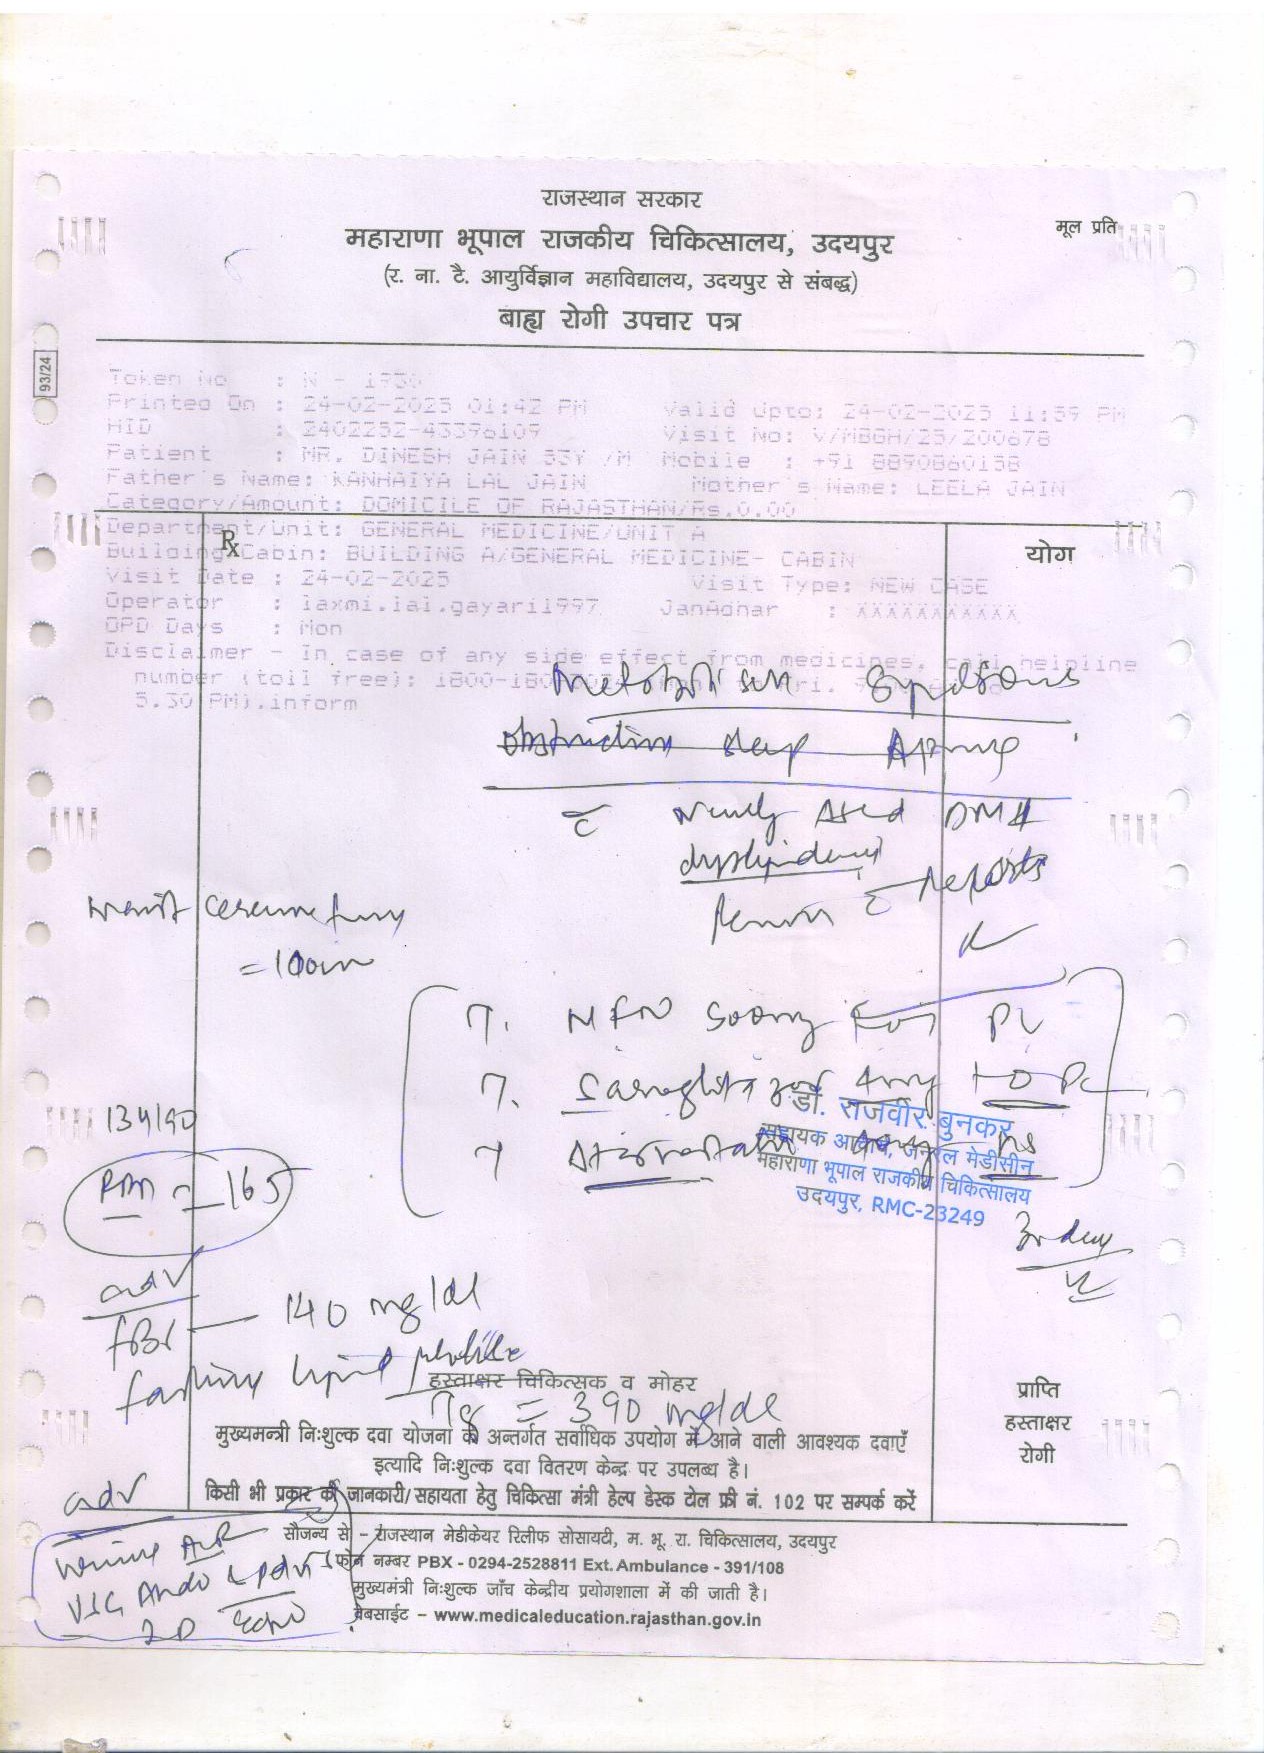 राजस्थान सरकार
मूल प्रति
महाराणा भूपाल राजकीय चिकित्सालय, उदयपुर
(र. ना. टै. आयुर्विज्ञान महाविद्यालय, उदयपुर से संबद्ध)
बाह्य रोगी उपचार पत्र
93/24
Token No : N - 1930
Printed On : 24-02-2025 01:42 PM Valid Upto: 24-02-2025 11:59 PM
HID : 2402252-43396109 Visit No: V/MBGH/25/200678
Patient : MR. DINESH JAIN 53Y /M Mobile : +91 8890860158
Father's Name: KANHAIYA LAL JAIN Mother's Name: LEELA JAIN
Category/Amount: DOMICILE OF RAJASTHAN/Rs.0.00
Department/Unit: GENERAL MEDICINE/UNIT A
Rx
योग
Building/Cabin: BUILDING A/GENERAL MEDICINE- CABIN
Visit Date : 24-02-2025 Visit Type: NEW CASE
Operator : laxmi.lal.gayari1997 JanAdhar : XXXXXXXXXXX
OPD Days : Mon
Disclaimer - In case of any side effect from medicines, call helpline
number (toll free): 1800-180
5.30 PM).inform
obstructive sleep
newly
dyslipidemia
reports
waist circumference
= 100cm
T.
T.
134/90
= 165
डॉ. राजवीर बुनकर
सहायक आचार्य, जनरल मेडीसीन
महाराणा भूपाल राजकीय चिकित्सालय
उदयपुर, RMC-23249
adv
FBS — 140 mg/dl
fasting lipid profile
हस्ताक्षर चिकित्सक व मोहर
Tg = 390 mg/dl
प्राप्ति
हस्ताक्षर
रोगी
मुख्यमन्त्री निःशुल्क दवा योजना के अन्तर्गत सर्वाधिक उपयोग में आने वाली आवश्यक दवाएँ
इत्यादि निःशुल्क दवा वितरण केन्द्र पर उपलब्ध है।
किसी भी प्रकार की जानकारी/सहायता हेतु चिकित्सा मंत्री हेल्प डेस्क टोल फ्री नं. 102 पर सम्पर्क करें
adv
सौजन्य से – राजस्थान मेडीकेयर रिलीफ सोसायटी, म. भू. रा. चिकित्सालय, उदयपुर
फोन नम्बर PBX - 0294-2528811 Ext. Ambulance - 391/108
मुख्यमंत्री निःशुल्क जाँच केन्द्रीय प्रयोगशाला में की जाती है।
वेबसाईट – www.medicaleducation.rajasthan.gov.in
2D Echo